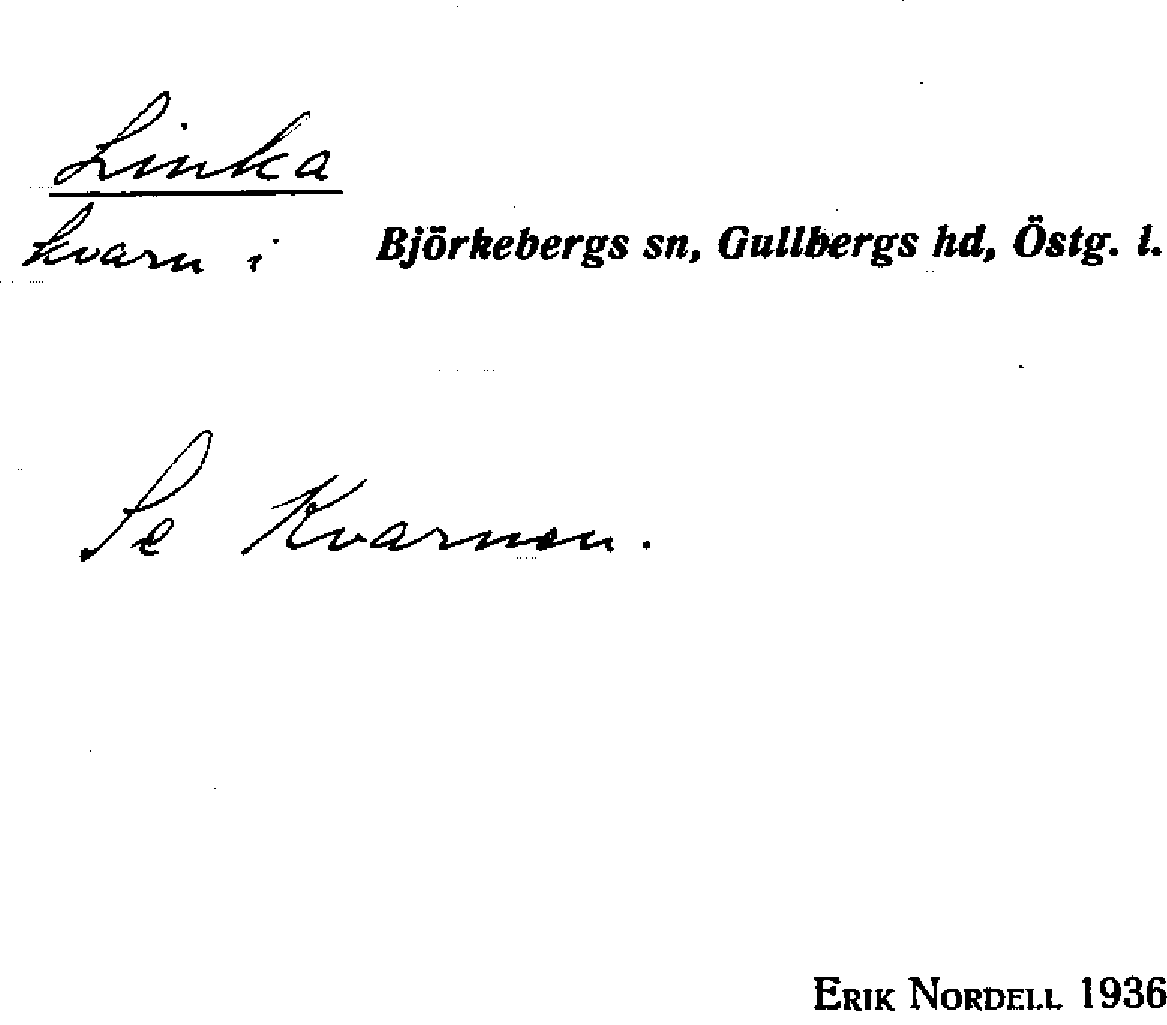 Linka
kvarn i Björkebergs sn, Gullbergs hd, Östg. l.
Se Kvarnen.
ERIK NORDELL 1936